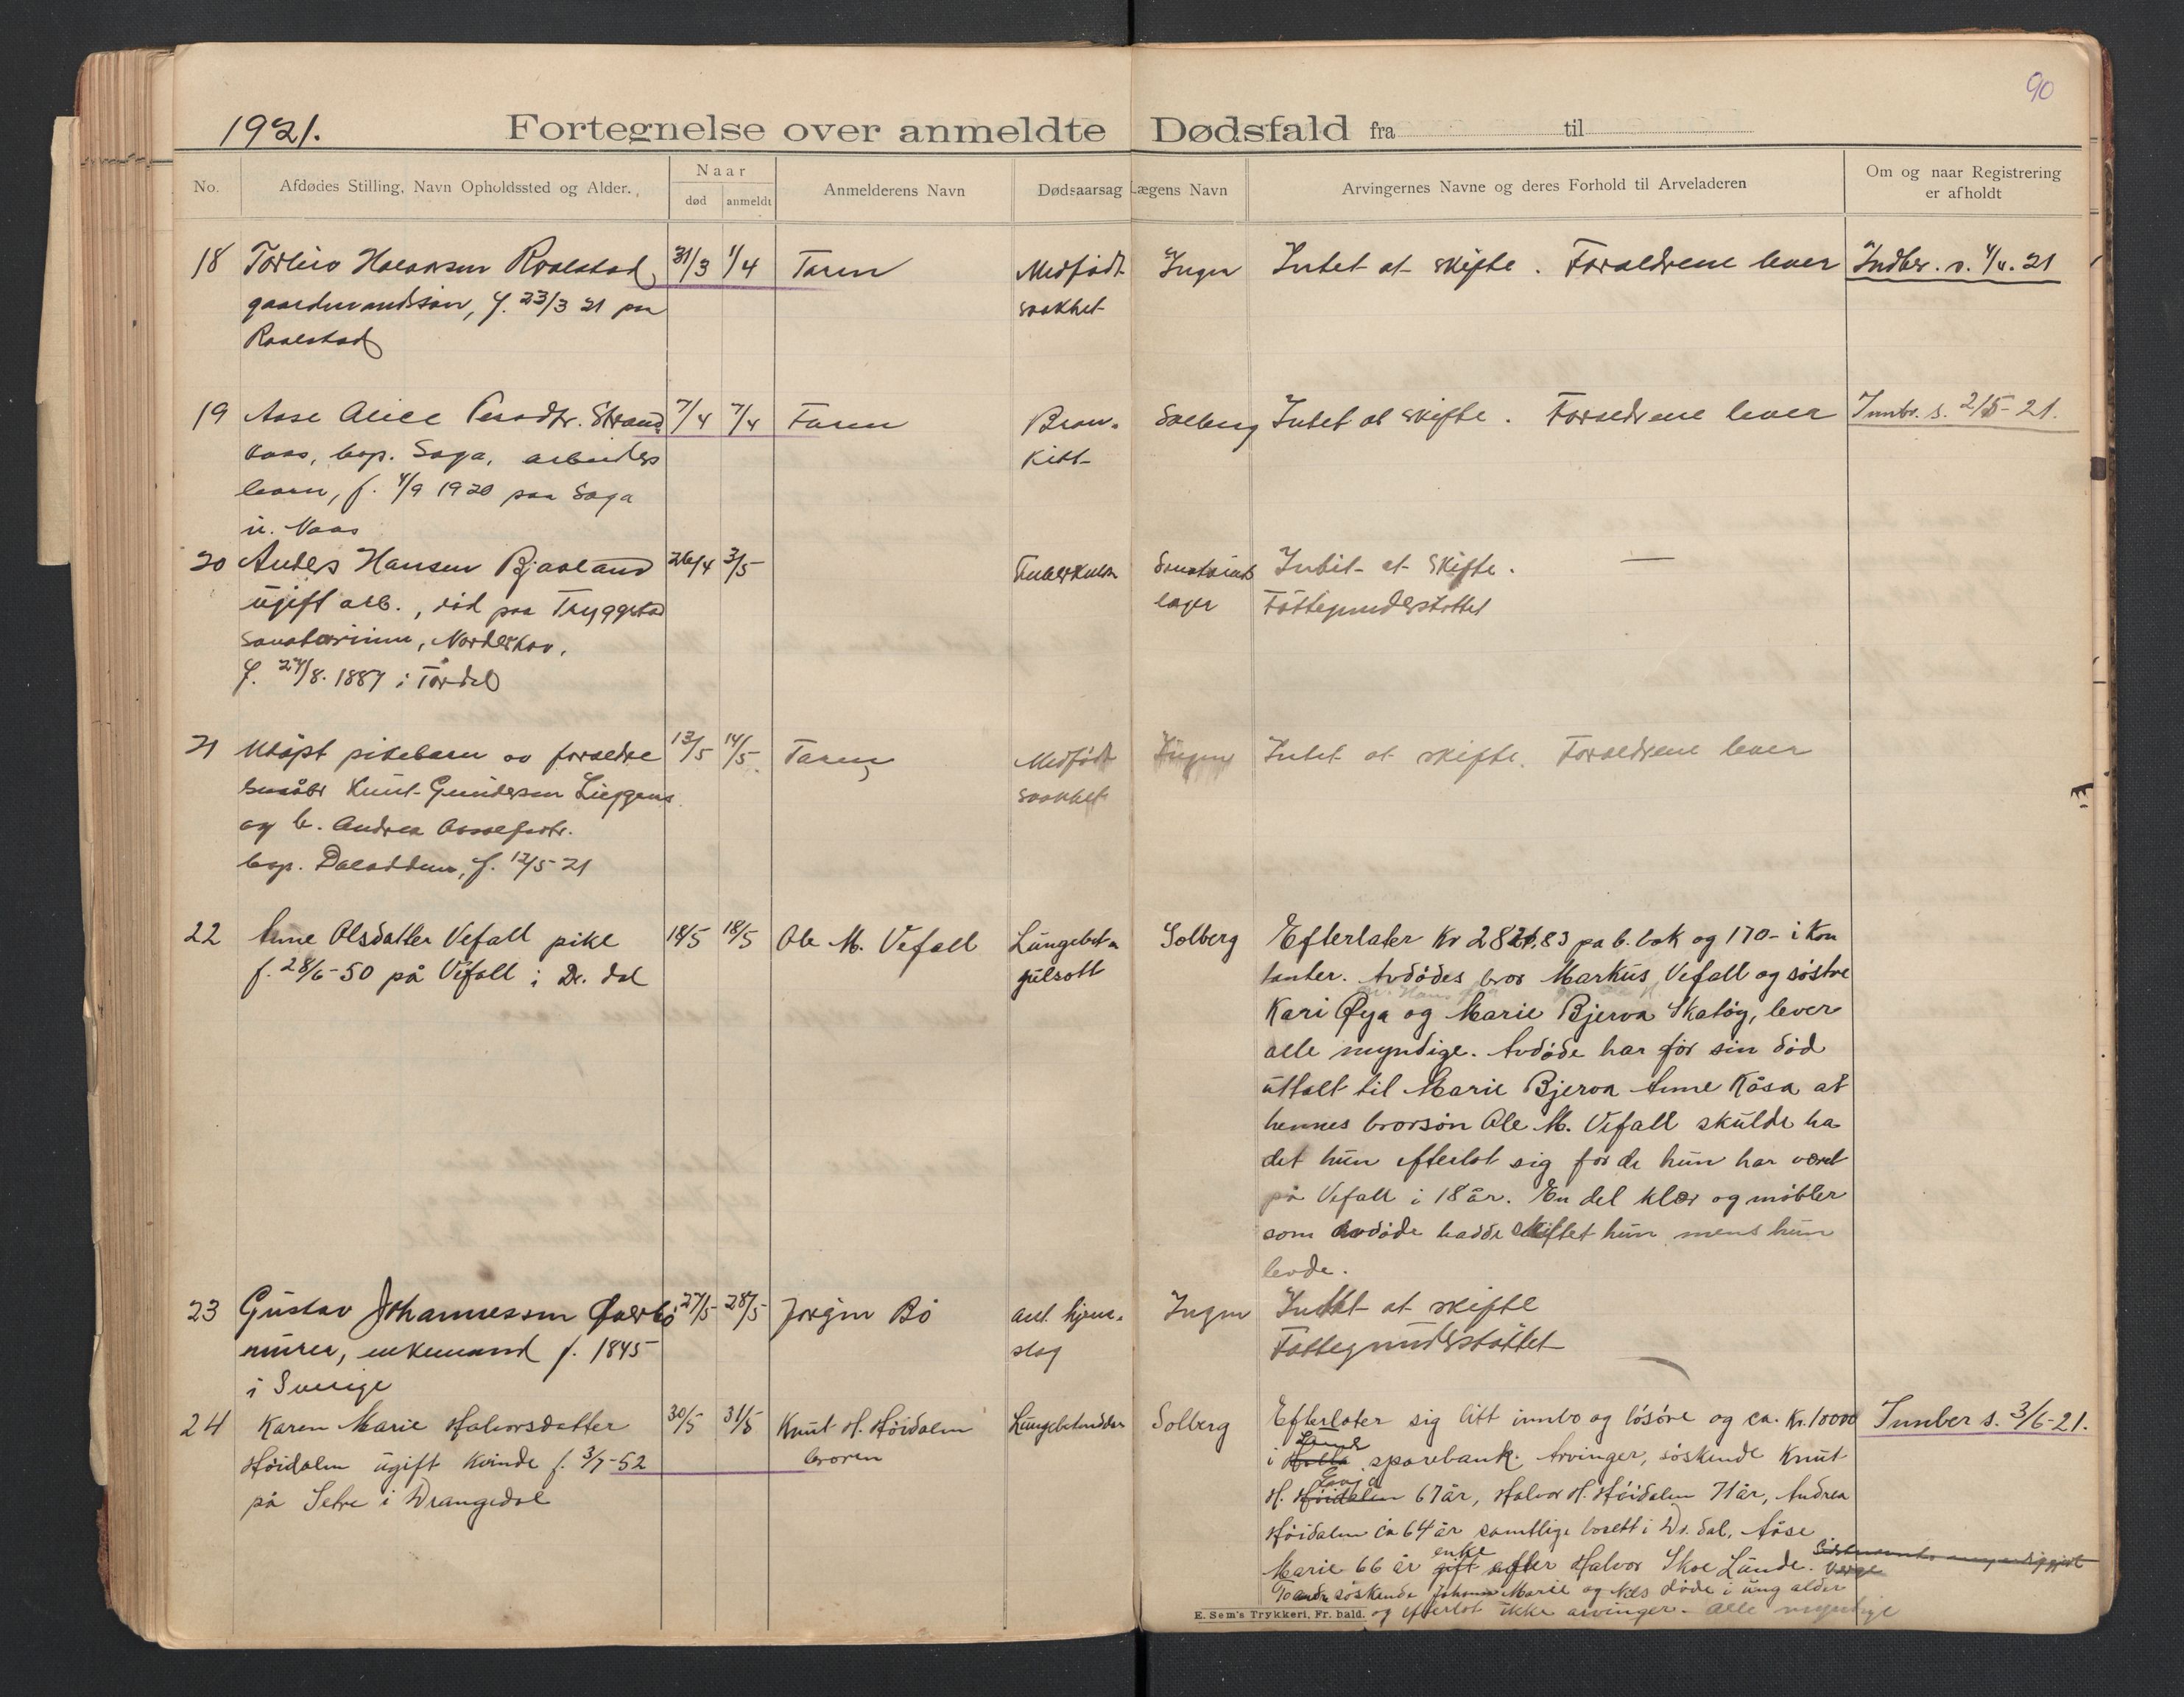 90
1921. Fortegnelse over anmeldte Dødsfald fra til
No. Afdødes Stilling, Navn Opholdssted og Alder. Naar død anmeldt Anmelderens Navn Dødsaarsag Lægens Navn Arvingernes Navne og deres Forhold til Arveladeren Om og naar Registrering er afholdt
18 Torleiv Roalstad 31/3 1/4 Faren Medfødt Ingen Intet at skifte. Forældrene lever Indber. s. 1/4. 21
gaardmandssøn, f. 23/3 21 paa svakhet
Roalstad
19 Aase Alice Strand 7/4 7/4 Faren Bron- Solberg Intet at skifte. Forældrene lever Innbr. s. 2/5-21.
bop. Saga, arbeiders kitt
barn, f. 4/9 1920 paa Saga
u. Naas
20 Anders Hansen Bjaaland 26/4 3/5 Tuberkulose Intet at skifte. —
ugift arb., død paa Tryggstad læge Fattigunderstøttet
sanatorium, Norderhov,
f. 27/8. 1887 i Tørdal
21 Udøpt pikebarn av forældre 13/5 14/5 Faren Medfødt Ingen Intet at skifte. Forældrene lever
Knut Gundersen svakhet
og h. Andrea
bop. f. 12/5 21
22 Anne Olsdatter Vefall pike 18/5 18/5 Ole M. Vefall Lungebet. Solberg Efterlater Kr 2821,83 på b. bok og 170- i kon
f. 28/6-50 på Vefall i Dr. dal gulsott tanter. Avdødes bror Markus Vefall og søstre
Kari Øya og Marie Bjerva Skatøy, lever
alle myndige. Avdøde har før sin død
uttalt til Marie Bjerva Anne Kåsa at
hennes brorsøn Ole M. Vefall skulde ha
det hun efterlot sig for de hun har været
på Vefall i 18 år. En del klær og møbler
som avdøde hadde skiftet hun mens hun
levde.
23 Gustav Johannessen Øverbø 27/5 28/5 Jørgen Bø Ant. hjerne- Ingen Intet at skifte
murer, enkemand f. 1845 slag Fattigunderstøttet
i Sverige
24 Karen Marie Halvorsdatter 30/5 31/5 Knut H. Høidalen Lungebetendelse Solberg Efterlater sig litt innbo og løsøre og ca. Kr. 10000 Innber s. 3/6-21.
Høidalen ugift kvinde f. 3/7-52 broren i Lunde sparebank. Arvinger, søskende Knut
på Setre i Drangedal H. Høidalen 67 år, Halvor H. Høidalen 71 år, Andrea
Høidalen ca 64 år samtlige bosett i Dr. dal, Åse
Marie 66 år gift enke efter Halvor Skoe Lunde.
To andre søskende Johanne Marie og Nils døde i ung alder
E. Sem's Trykkeri, Fr. hald. og efterlot ikke arvinger. Alle myndige